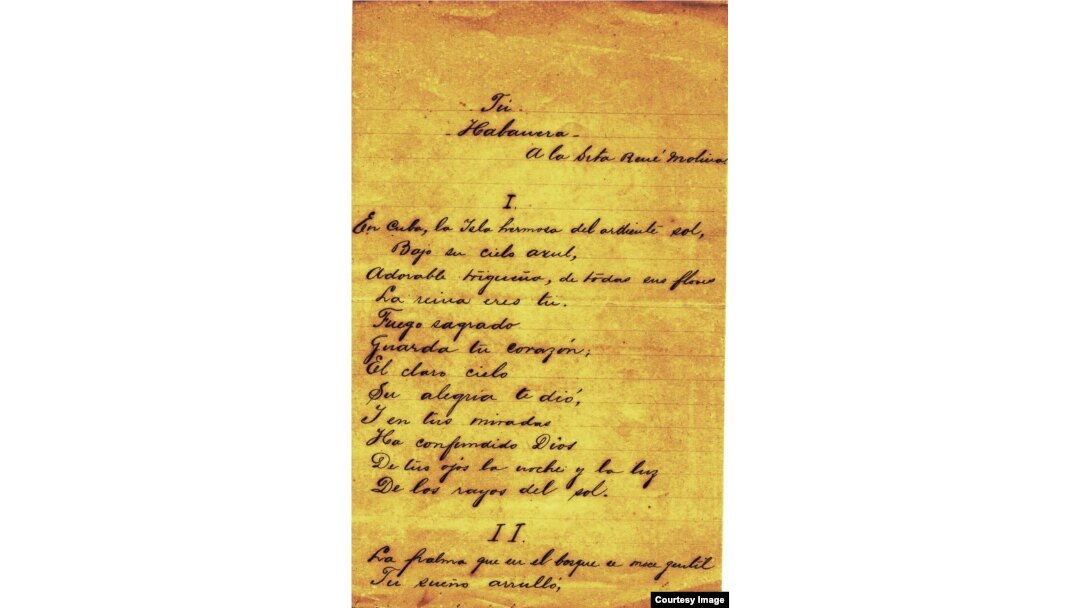 Tú.
- Habanera -
A la Srta René Molina
I.
En Cuba, la Isla hermosa del ardiente sol,
Bajo su cielo azul,
Adorable trigueña, de todas sus flores
La reina eres tu.
Fuego sagrado
Guarda tu corazón;
El claro cielo
Su alegria te dió,
I en tus miradas
Ha confundido Dios
De tus ojos la noche y la luz
De los rayos del sol.
II.
La palma que en el bosque se mece gentil
Tu sueño arrulló,
Courtesy Image